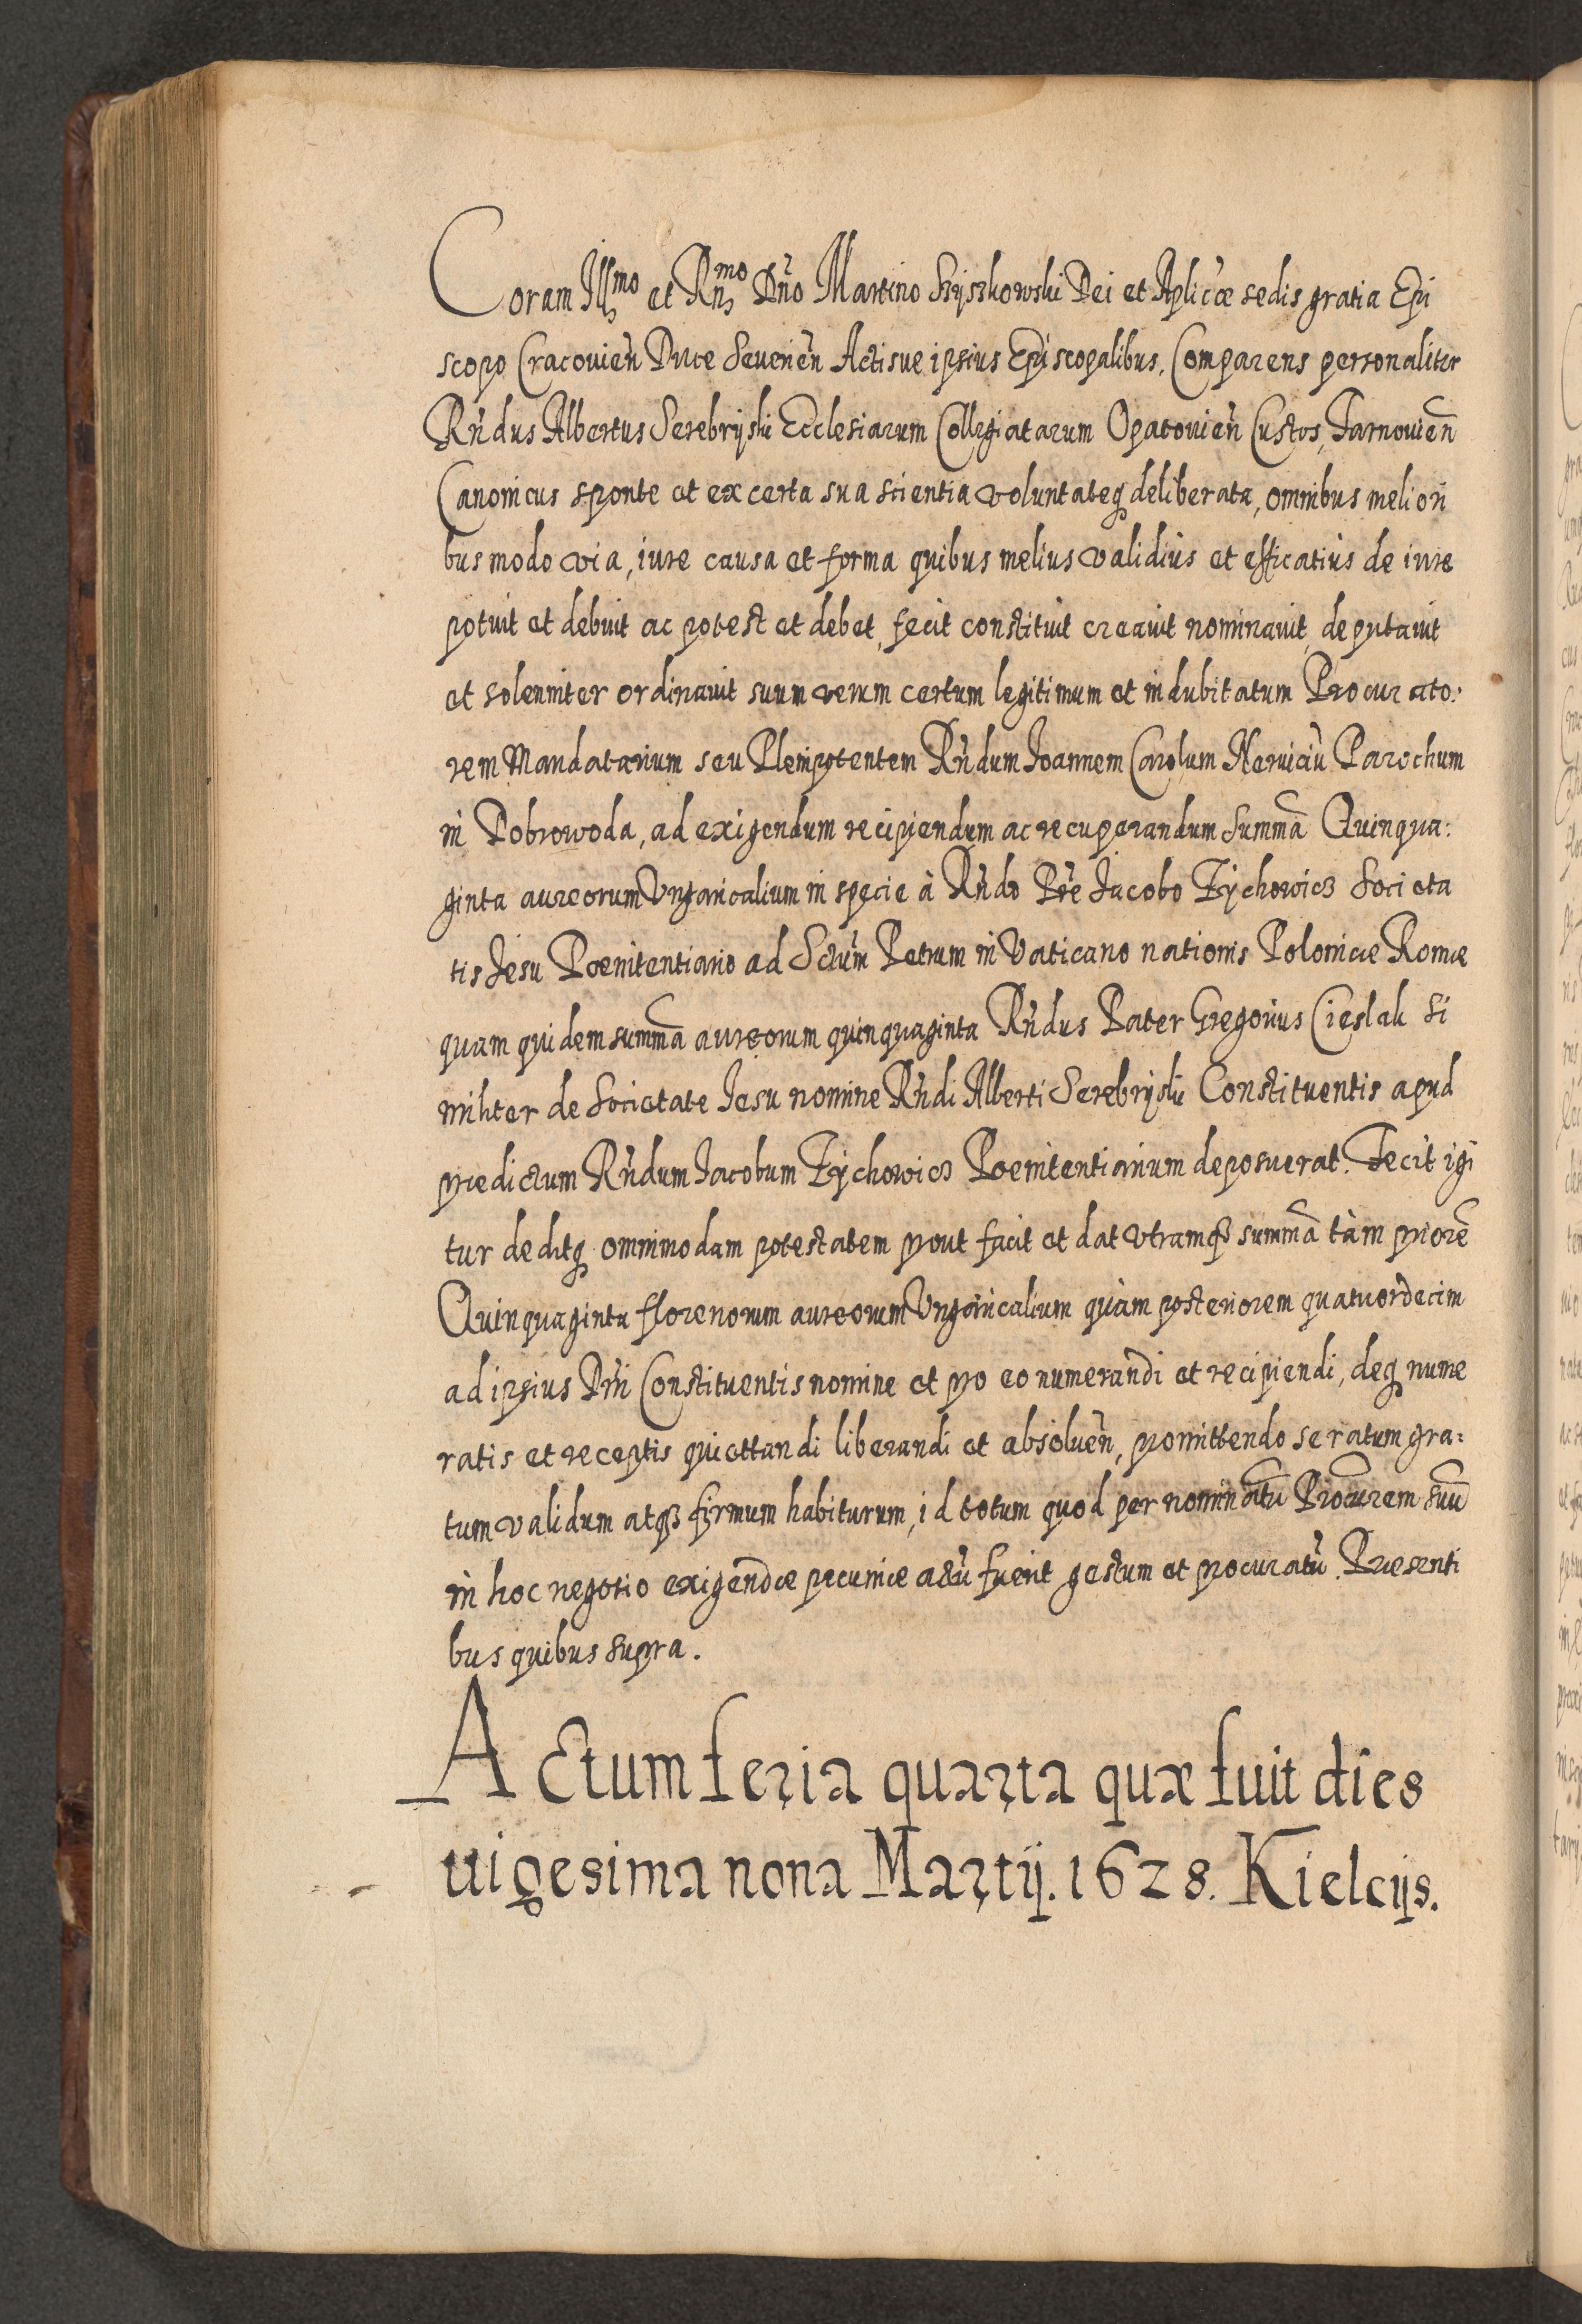 Coram Illmo et Rndmo Dño Martino Szyszkowski Dei et Aplicæ sedis gratia Epi
scopo Cracovień Duce Severień Actisve ipsius Episcopalibus, Comparens personaliter
Rñdus Albertus Serebryski Ecclesiarum Collegiatarum Opatovień Custos, Tarnovień
Canonicus sponte et ex certa sua scientia voluntateq deliberata, omnibus meliori
bus modo via, iure causa et forma quibus melius validius et efficatius de iure
potuit et debuit ac potest et debet, fecit constituit creavit nominavit, deputavit
et solenniter ordinavit suum verum certum legitimum et indubitatum Procurato:
rem Mandatarium seu Plenipotentem Rñdum Joannem Carolum Nerviciũ Parochum
in Dobrowoda, ad exigendum recipiendum ac recuperandum summã Quinqua:
ginta aureorum Ungaricalium in specie à Rñdo Pre Jacobo Zychowicz Societa
tis Jesu Poenitentiario ad Sctum Petrum in Vaticano nationis Polonicæ Romæ
quam quidem summã aureorum quinquaginta Rñdus Pater Gregorius Cieslak Si
militer de Societate Jesu nomine Rñdi Alberti Serebryski Constituentis apud
prædictum Rñdum Jacobum Zychowicz Poenitentiarium deposuerat. Fecit igi
tur deditq omnimodam potestatem prout facit et dat utramqȝ summã tàm priorẽ
Quinquaginta florenorum aureorum Ungaricalium quàm posteriorem quatuordecim
ad ipsius Dñi Constituentis nomine et pro eo numerandi et recipiendi, deq nume
ratis et receptis quiettandi liberandi et absolueñ, promittendo se ratum gra:
tum validum atqȝ firmum habiturum, id totum quod per nominatũ Procurem suũ
in hoc negotio exigendæ pecuniæ actũ fuerit gestum et procuratũ. Præsenti
bus quibus supra.
Actum feria quarta quæ fuit dies
vigesima nona Martij. 1628. Kielcijs.